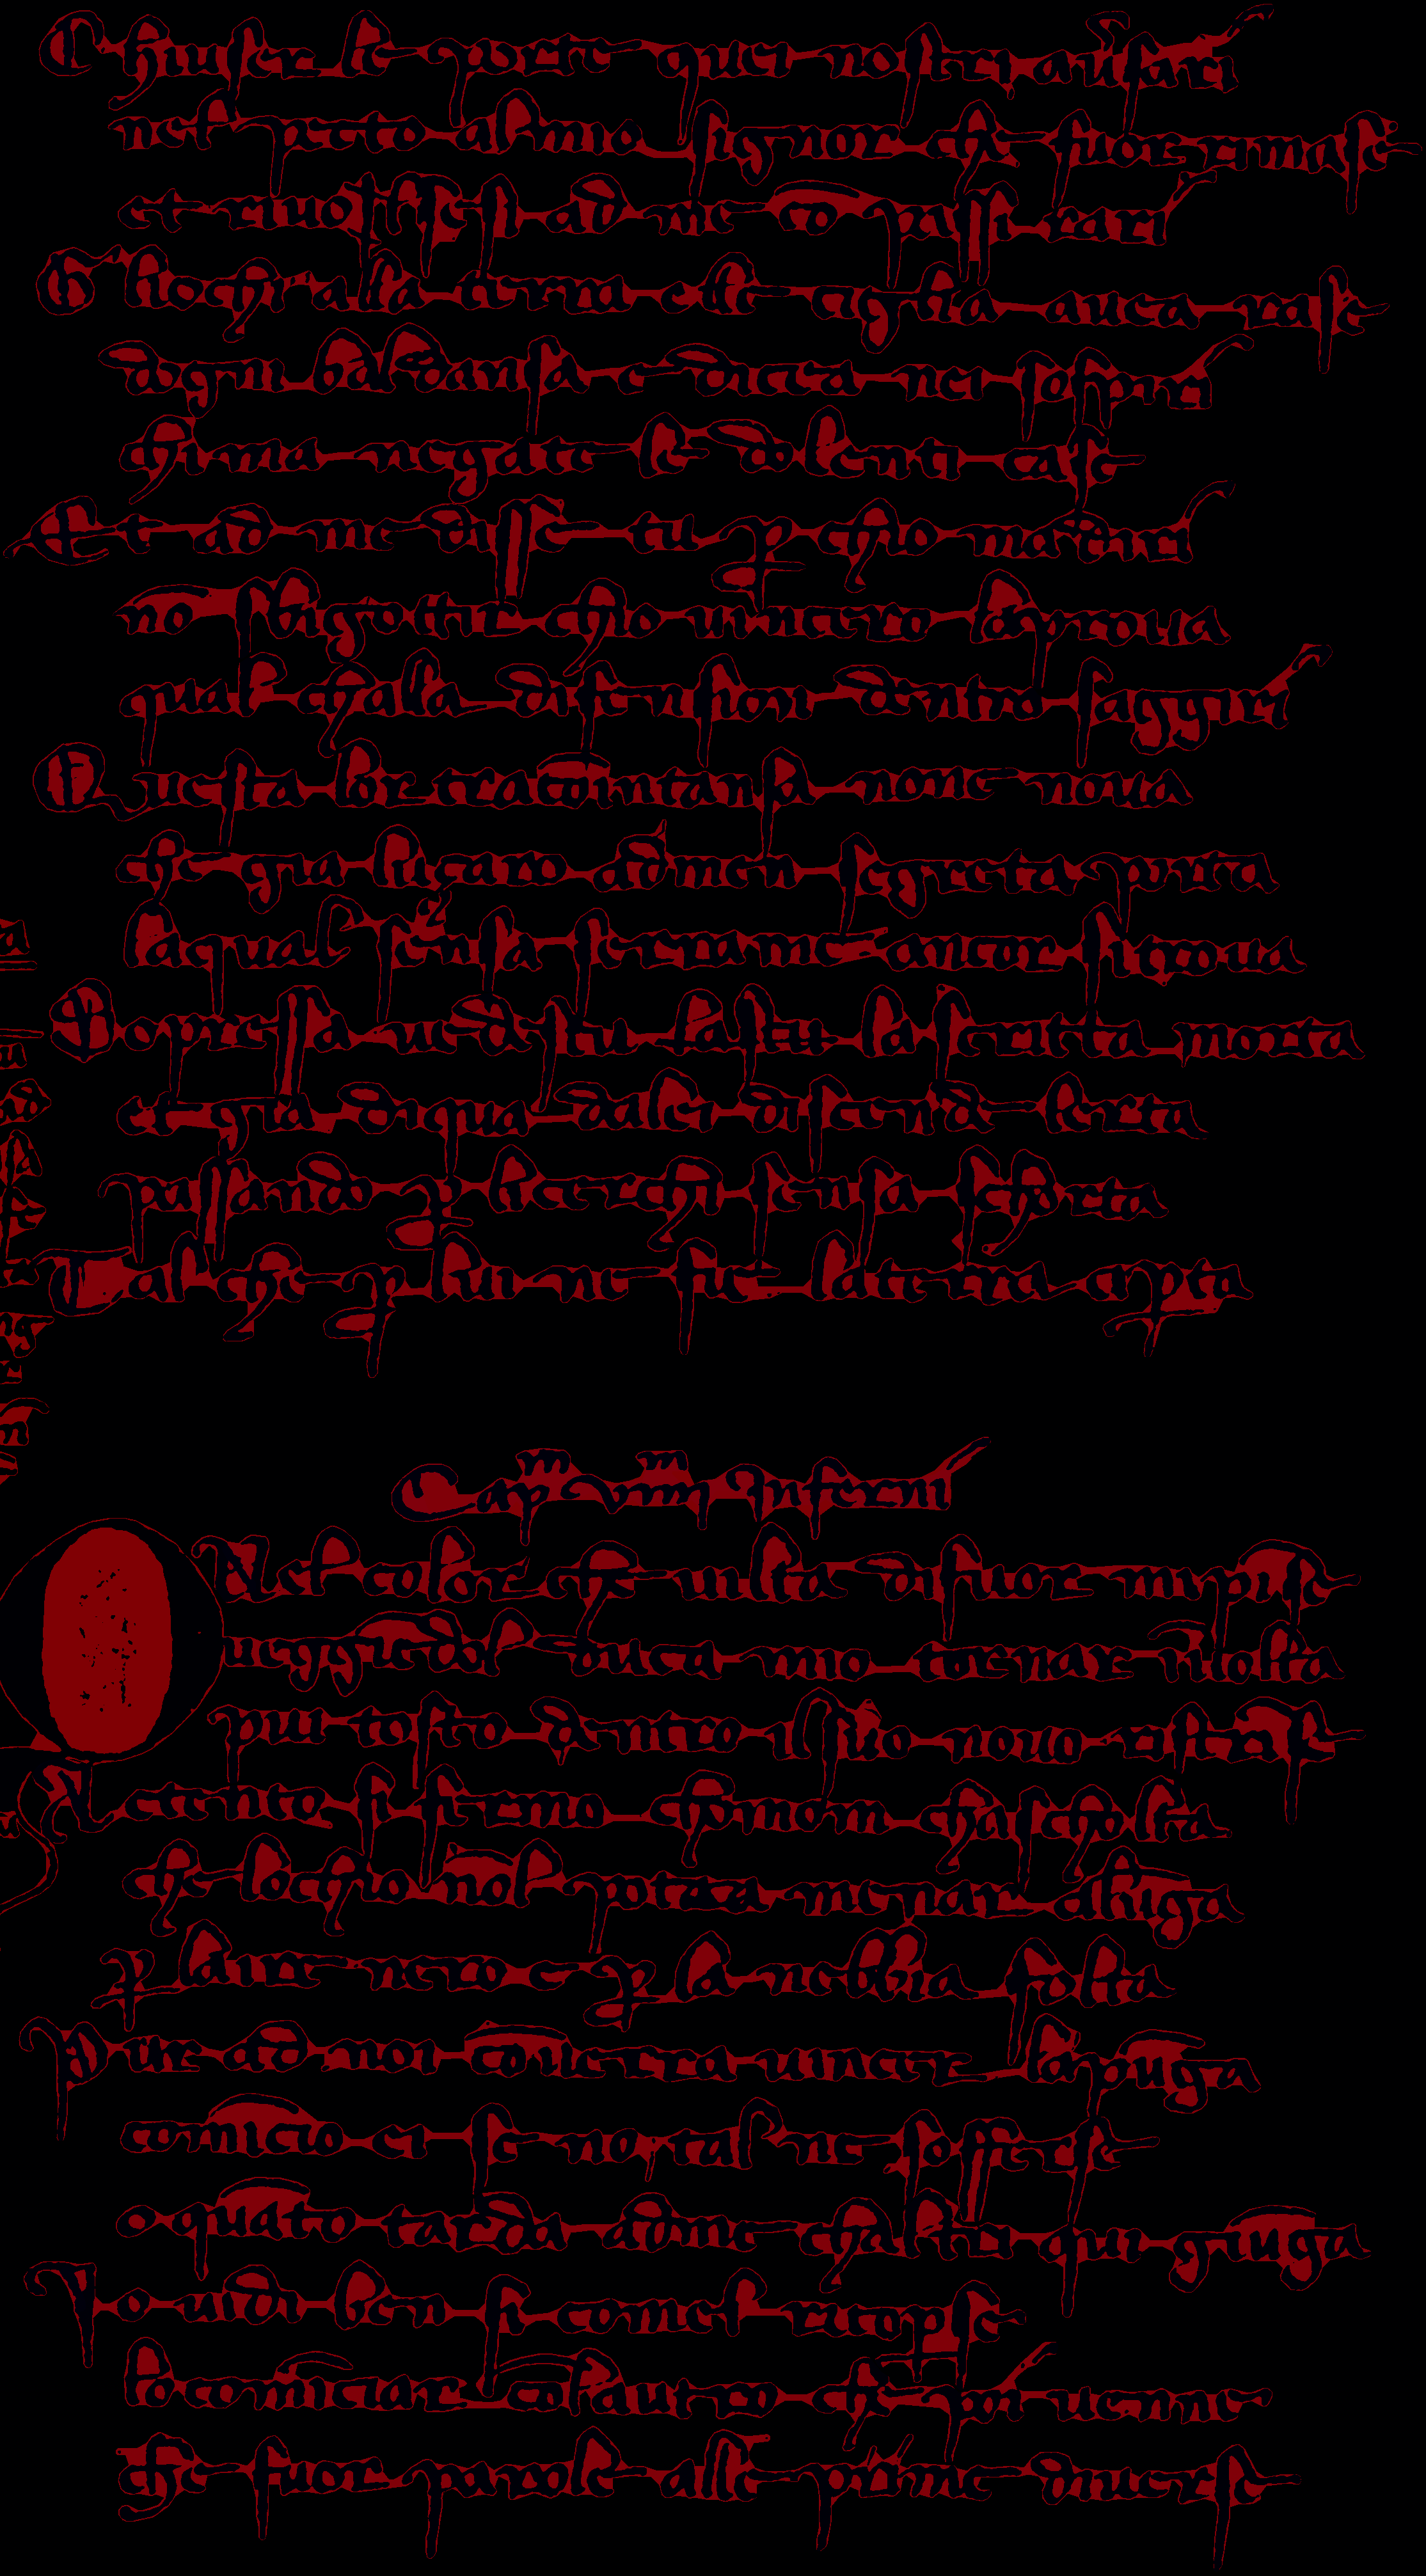 Chiuser le porte quei nostri aũsari
nel pecto al mio signor che fuor rimase
et riuolsesi ad me cō passi rari
Gliochi ala terra ele ciglia auea rase
dogni baldansa e dicea nei sospiri
chima negate le dolenti case
Et ad me disse tu p chio madiri
nō sbigottir chio uincero la proua
qual chala difension dentro saggiri
Questa lor tracōintansa none noua
che gia lusaro admen segreta porta
laqual sensa serrame ancor sitroua
Sopressa uedestu la scritta morta
et gia diqua dalei discende lerta
passando p licerchi sensa schorta
Tal che p lui ne fie la terra apta
Capm viiiim Inferni
Quel color che uilta difuor mi pise
ueggiēdol duca mio tornar ī uolta
piu tosto dentro ilsuo nouo ristrise
Atento si fermo chomom chascholta
che lochio nol potea menar alūga
p laire nero e p la nebbia folta
Pur ad noi cōuerra uincer la pūga
comīcio ei se no, tal ne sofferse
o quāto tarda adme chaltri qui giūga
Io uidi ben si comel ricopse
lo comīciar cōlautro che poi uenne
che fuor parole alle prime diuerse